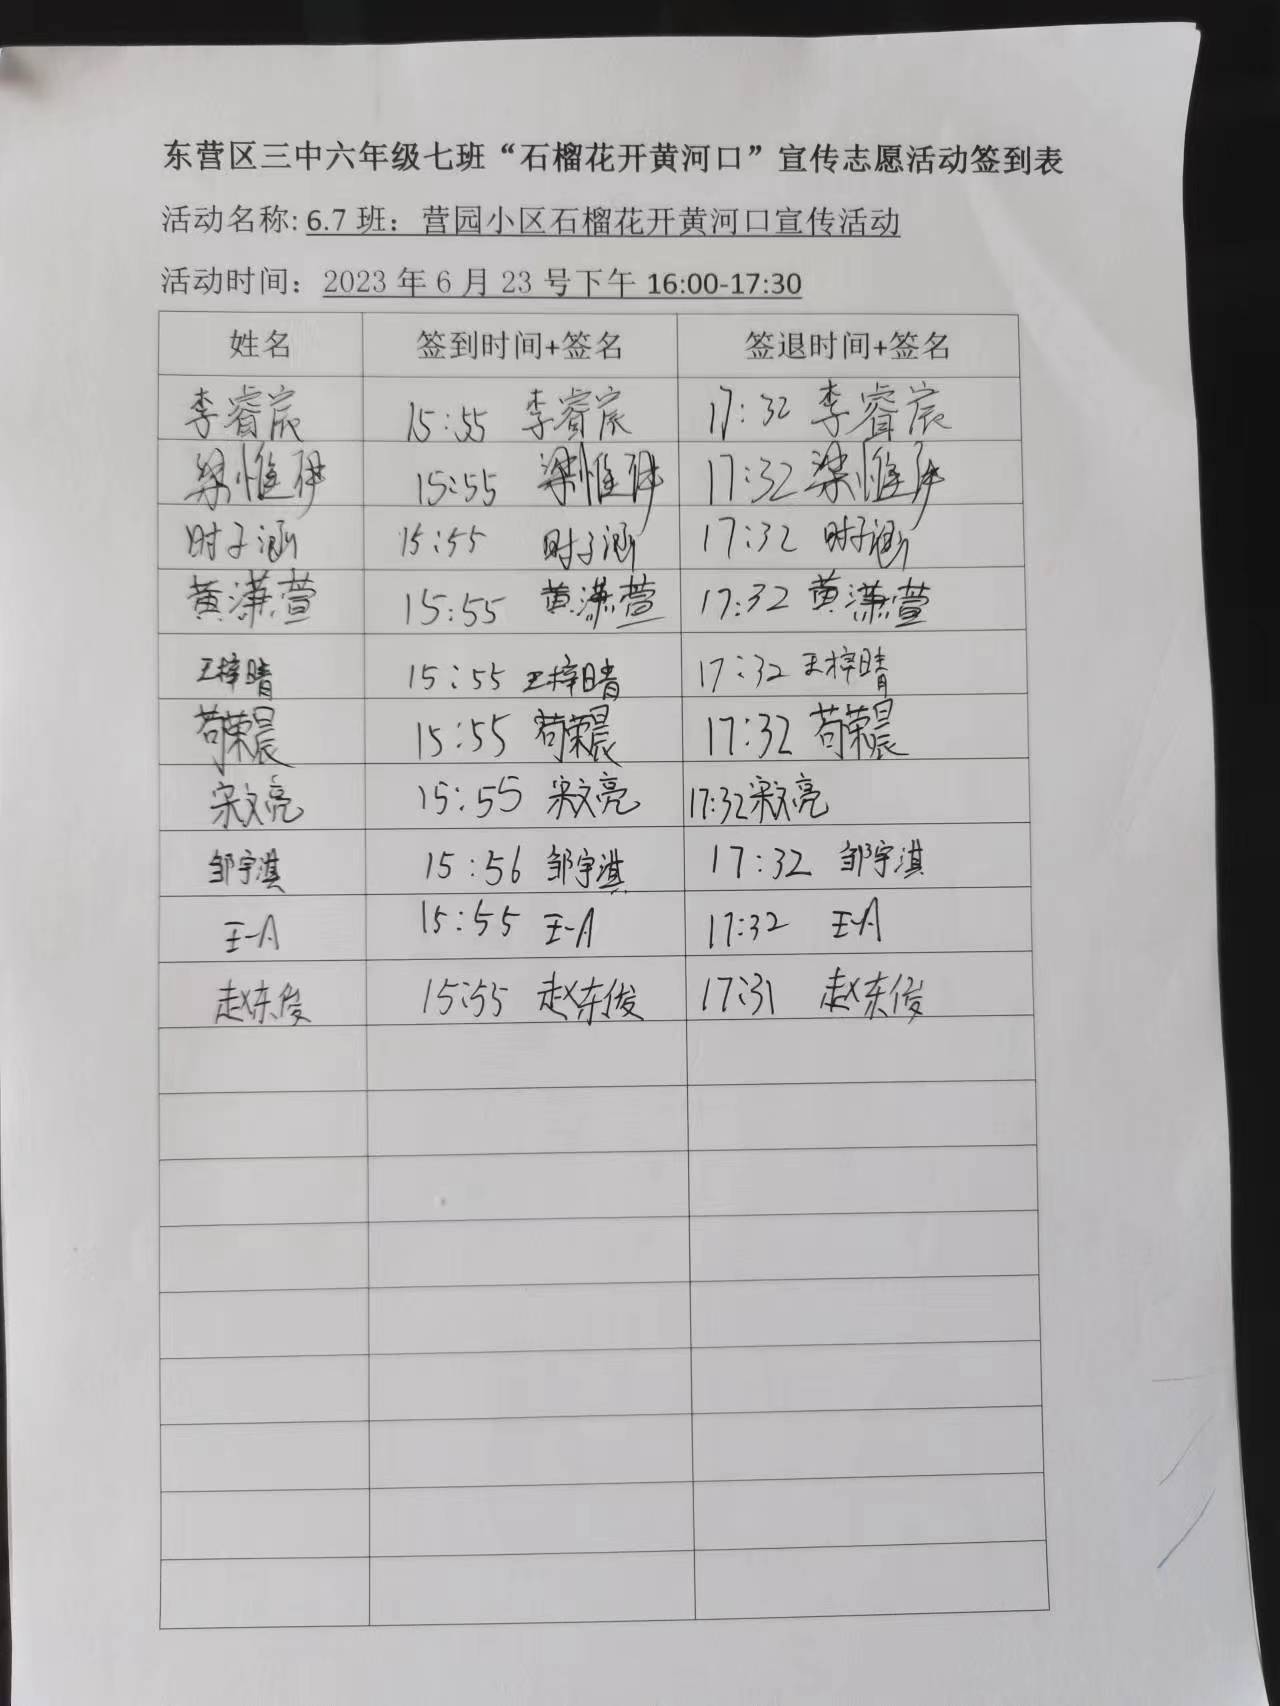 东营区三中六年级七班“石榴花开黄河口”宣传志愿活动签到表
活动名称: 6.7 班：营园小区石榴花开黄河口宣传活动
活动时间：2023 年 6 月 23 号下午 16:00-17:30
姓名 签到时间+签名 签退时间+签名
李睿宸 15:55 李睿宸 17:32 李睿宸
梁惟 15:55 梁惟 17:32 梁惟
时子涵 15:55 时子涵 17:32 时子涵
黄潇萱 15:55 黄潇萱 17:32 黄潇萱
王梓晴 15:55 王梓晴 17:32 王梓晴
苟荣晨 15:55 苟荣晨 17:32 苟荣晨
宋文亮 15:55 宋文亮 17:32 宋文亮
邹宇淇 15:56 邹宇淇 17:32 邹宇淇
王一 15:55 王一 17:32 王一
赵东俊 15:55 赵东俊 17:31 赵东俊